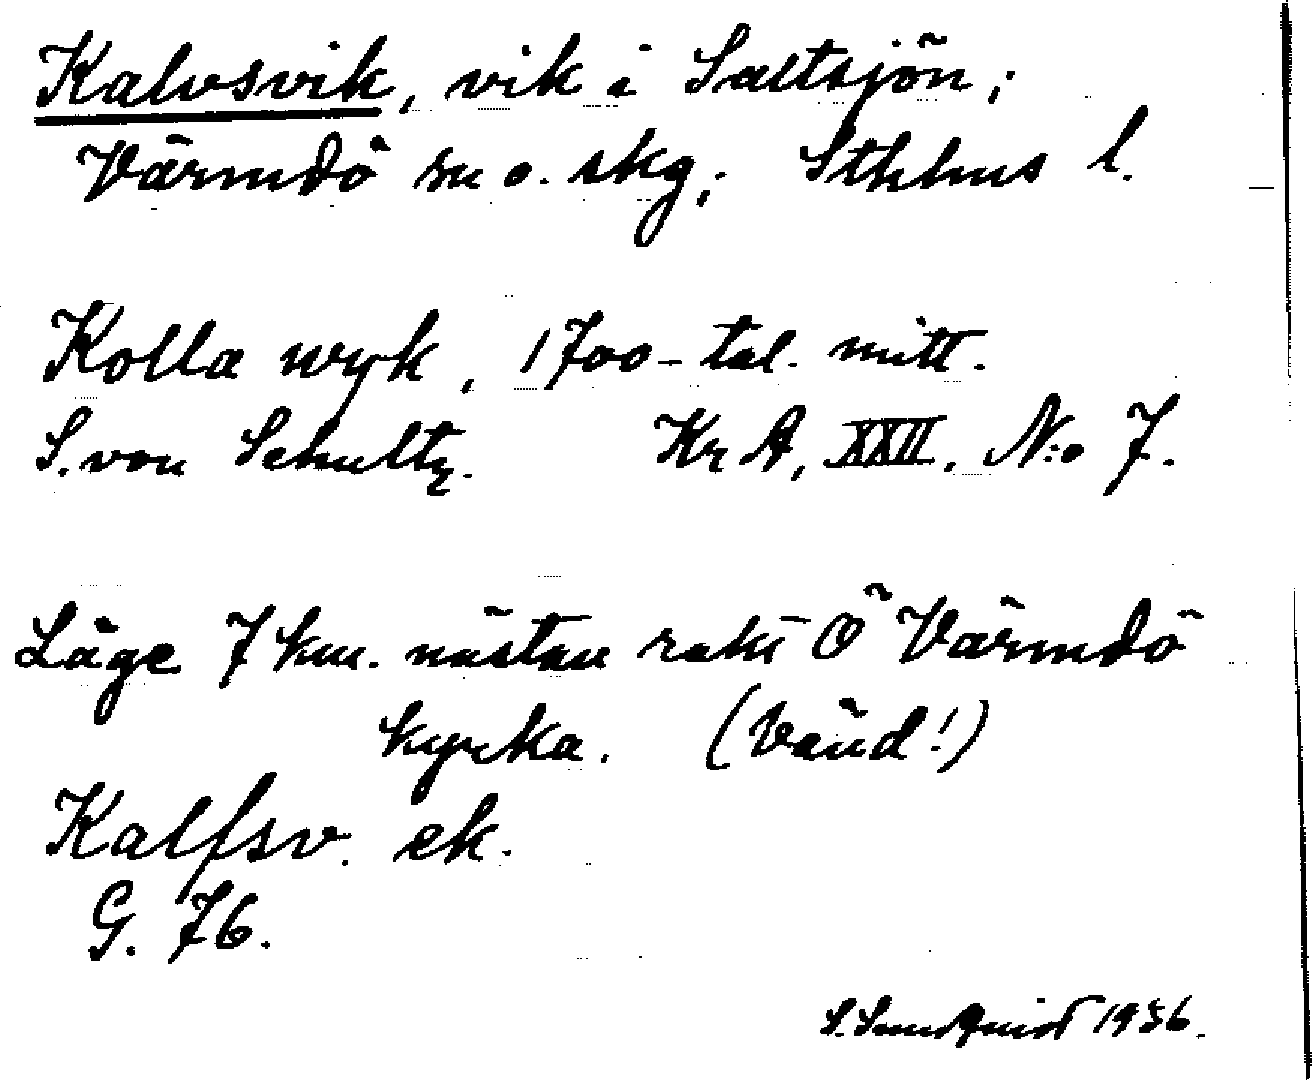 Kalvsvik, vik i Saltsjön;
Värmdö sn o. skg; Sthlms l.
Kolla wyk, 1700-tal. mitt.
S. von Schultz. Kr A, XXII. N:o 7.
Läge 7 km. nästan rakt Ö Värmdö
kyrka. (Vänd!)
Kalfsv. ek.
G. 76.
S. Sundquist 1936.